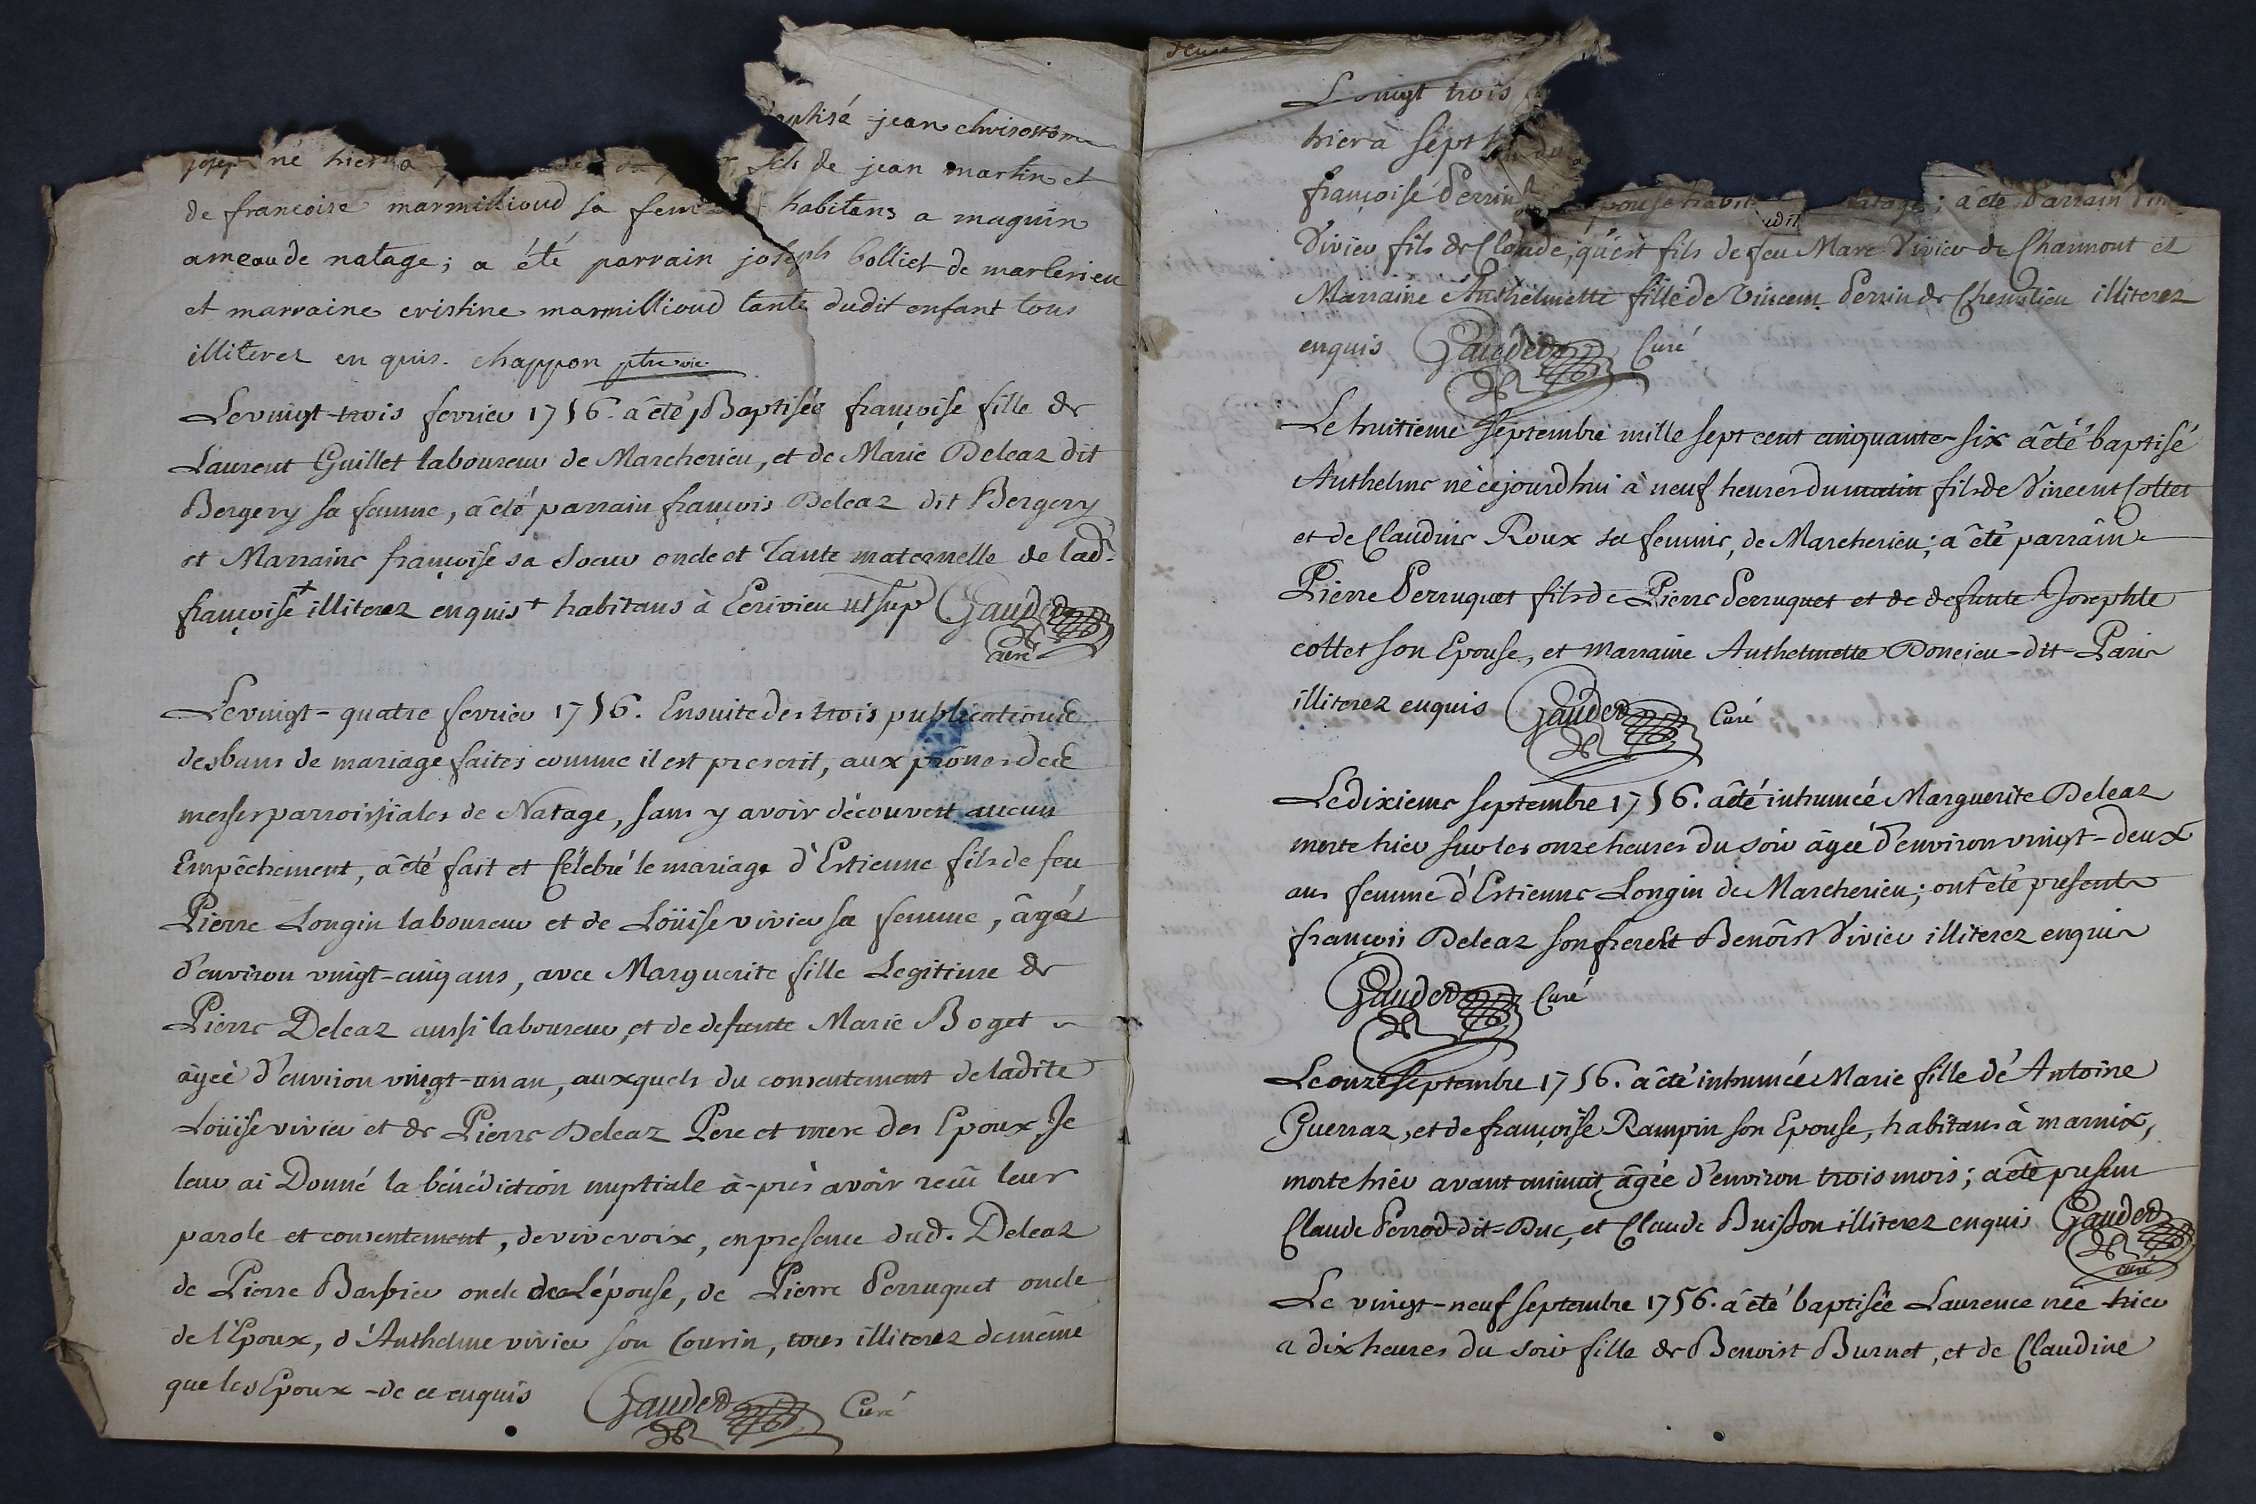 baptisé jean chrisostome
josep né hier a fils de jean martin et
de francoise marmillioud sa femme habitans a maguin
ameau de natage; a été parrain joseph bolliet de marlerieu
et marraine cristine marmillioud tante dudit enfant tous
illiterez en quis. chappon ptre vic.
Le vingt-trois fevrier 1756. a été Baptisée françoise fille de
Laurent Guillet laboureur de Marcherieu, et de Marie Deleaz dit
Bergery sa femme, a été parrain françois Deleaz dit Bergery
et Marraine françoise sa soeur oncle et Tante maternelle de lad.
françoise + illiterez enquis + habitans à Ecrivieu ut sup Gauded
curé
Le vingt-quatre fevrier 1756. Ensuite des trois publications
des bans de mariage faites comme il est prescrit, aux prônes des
messes parroissiales de Natage, sans y avoir découvert aucun
Empêchement, a été fait et Célébré le mariage d'Estienne fils de feu
Pierre Longin laboureur et de Loüise vivier sa femme, âgé
d'environ vingt-cinq ans, avec Marguerite fille Legitime de
Pierre Deleaz aussi laboureur, et de defunte Marie Boget
âgée d'environ vingt-un an, auxquels du consentement de ladite
Loüise vivier et de Pierre Deleaz Pere et mere des Epoux, Je
leur ai Donné la bénédiction nuptiale à-près avoir reçû leur
parole et consentement, de vive voix, en presence dud. Deleaz
de Pierre Barbier oncle de L'épouse, de Pierre Perruquet oncle
de l'Epoux, d'Anthelme vivier son Cousin, tous illiterez de même
que les Epoux de ce enquis Gauded Curé
Le vingt trois
hier à sept h
françoise Perrin épouse habit natage; a été Parrain
Vivier fils de Claude, qu'est fils de feu Marc Vivier de Charmont et
Marraine Anthelmette fille de Vincent Perrin de Chemilieu illiterez
enquis Gauded Curé
Le huitieme septembre mille sept cent cinquante-six a été baptisé
Anthelme né cejourdhui à neuf heures du matin fils de Vincent Collet
et de Claudine Roux sa femme, de Marcherieu; a été parrain
Pierre Perruquet fils de Pierre Perruquet et de defunte Josephte
collet son Epouse, et marraine Anthelmette Doncieu-dit-Paris
illiterez enquis Gauded Curé
Le dixieme septembre 1756. a été inhumée Marguerite Deleaz
morte hier sur les onze heures du soir âgée d'environ vingt-deux
ans femme d'Estienne Longin de Marcherieu; ont été presents
françois Deleaz son frere et Benôist Vivier illiterez enquis
Gauded Curé
Le onze septembre 1756. a été inhumée Marie fille de Antoine
Guerraz, et de françoise Rampin son Epouse, habitans à marnix,
morte hier avant minuit âgée d'environ trois mois; a été presens
Claude Perrod-dit-Duc, et Claude Buisson illiterez enquis Gauded
curé
Le vingt-neuf septembre 1756. a été baptisée Laurence née hier
a dix heures du soir fille de Benoist Burnet, et de Claudine